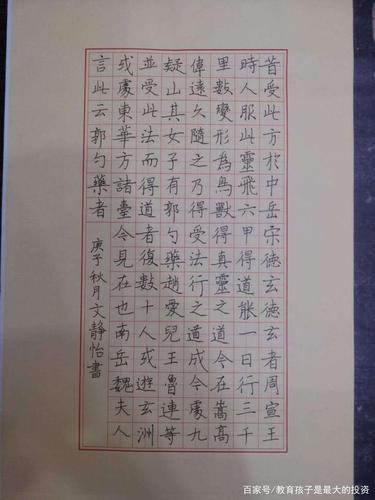 昔受此方於中岳宋德玄德玄者周宣王
時人服此靈飛六甲得道能一日行三千
里數變形為鳥獸得真靈之道今在嵩高
偉遠久隨之乃得受法行之道成今處九
疑山其女子有郭勺藥趙愛兒王魯連等
並受此法而得道者復數十人或遊玄洲
或處東華方諸臺今見在也南岳魏夫人
言此云郭勺藥者
庚子秋月文靜怡書
百家号/教育孩子是最大的投资